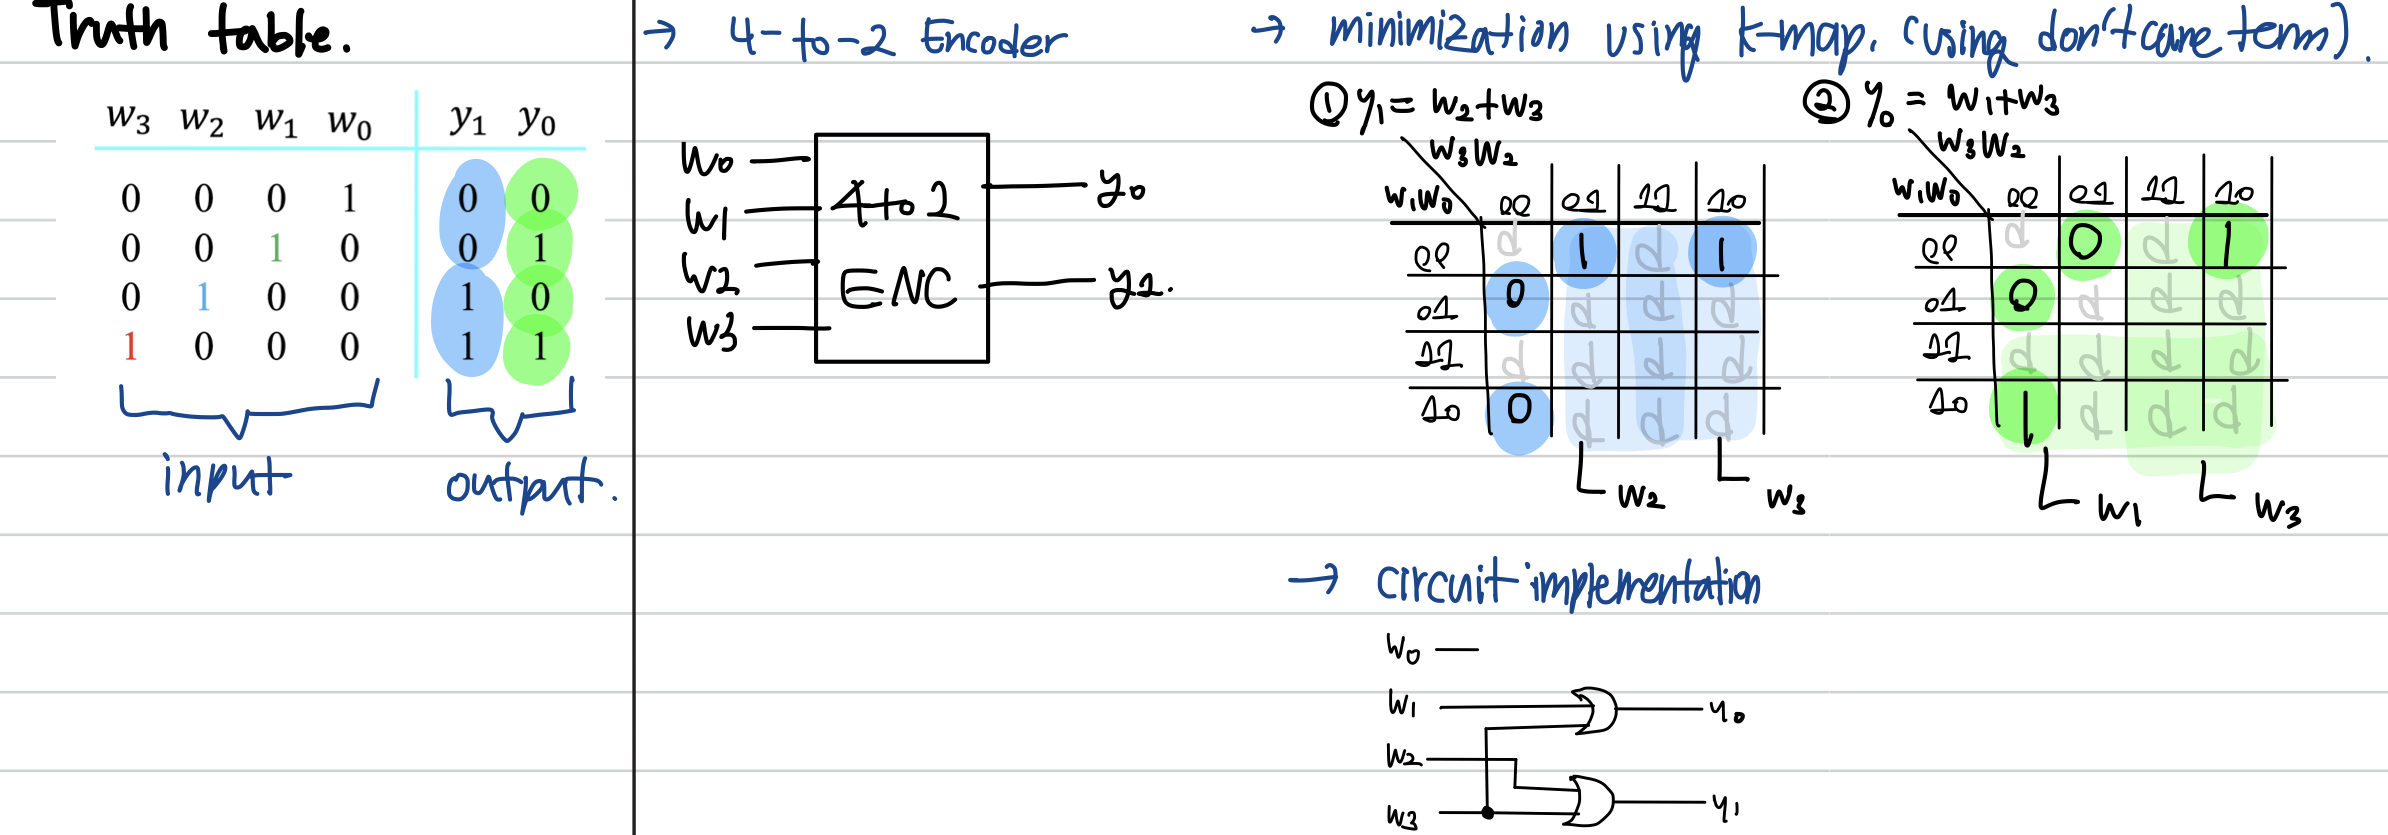 Truth table.
w3 w2 w1 w0 y1 y0
0 0 0 1 0 0
0 0 1 0 0 1
0 1 0 0 1 0
1 0 0 0 1 1
input output.
→ 4-to-2 Encoder
W0
W1
W2
W3
4to2
ENC
y0
y1.
→ minimization using k-map. (using don't care term).
① y1 = W2+W3
W3W2
W1W0 00 01 11 10
00 d 1 d 1
01 0 d d d
11 d d d d
10 0 d d d
W2 W3
② y0 = W1+W3
W3W2
W1W0 00 01 11 10
00 d 0 d 1
01 0 d d d
11 d d d d
10 1 d d d
W1 W3
→ circuit implementation
W0
W1 y0
W2
W3 y1